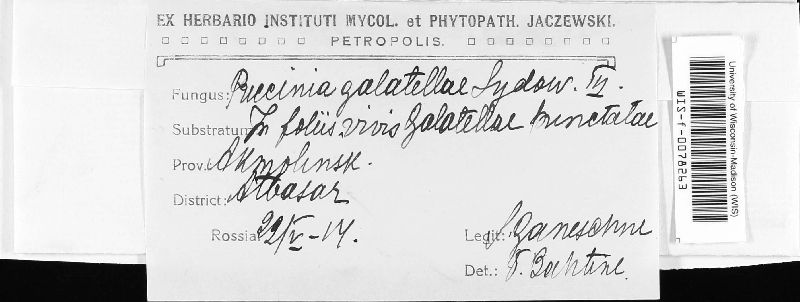 EX HERBARIO INSTITUTI MYCOL. et PHYTOPATH. JACZEWSKI.
PETROPOLIS.
Fungus: Puccinia galatellae Sydow. III.
Substratum In foliis vivis Galatellae punctatae
Prov. Akmolinsk.
District: Atbasar
Rossia 22/V-14.
Legit: S. Ganeschine
Det.: V. Bachtine.
University of Wisconsin-Madison (WIS)
WIS-f-0078263